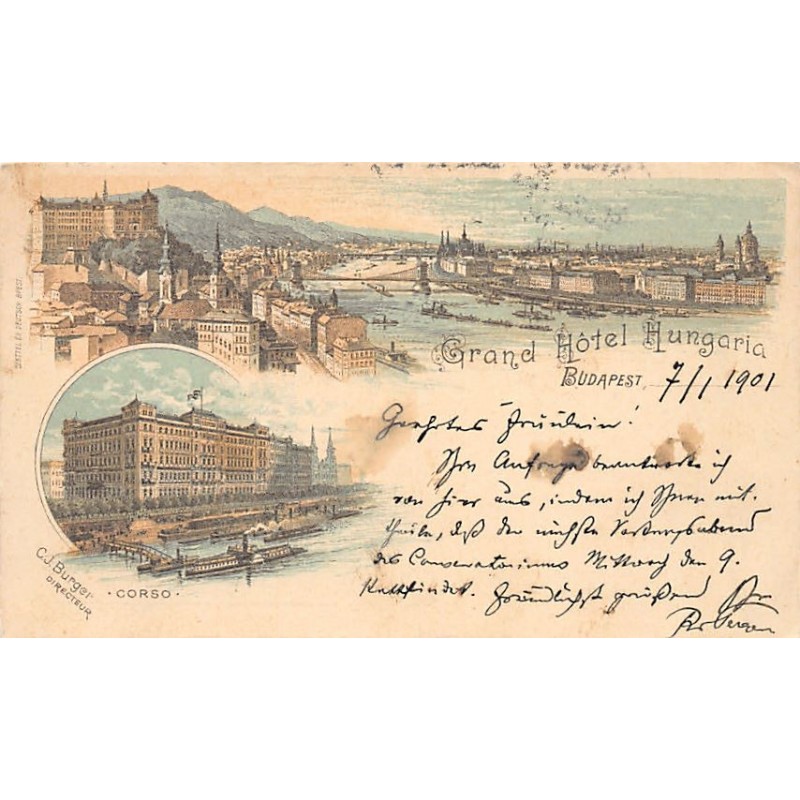 Grand Hôtel Hungaria
BUDAPEST, 7/1 1901
Geehrtes Fräulein!
Ihre Anfrage beantworte ich
von hier aus, indem ich Ihnen mit-
theile, daß der nächste Vortragsabend
des Conservatoriums Mittwoch den 9.
stattfindet. Freundlichst grüßend Ihr
C.J. Burger
DIRECTEUR
· CORSO ·